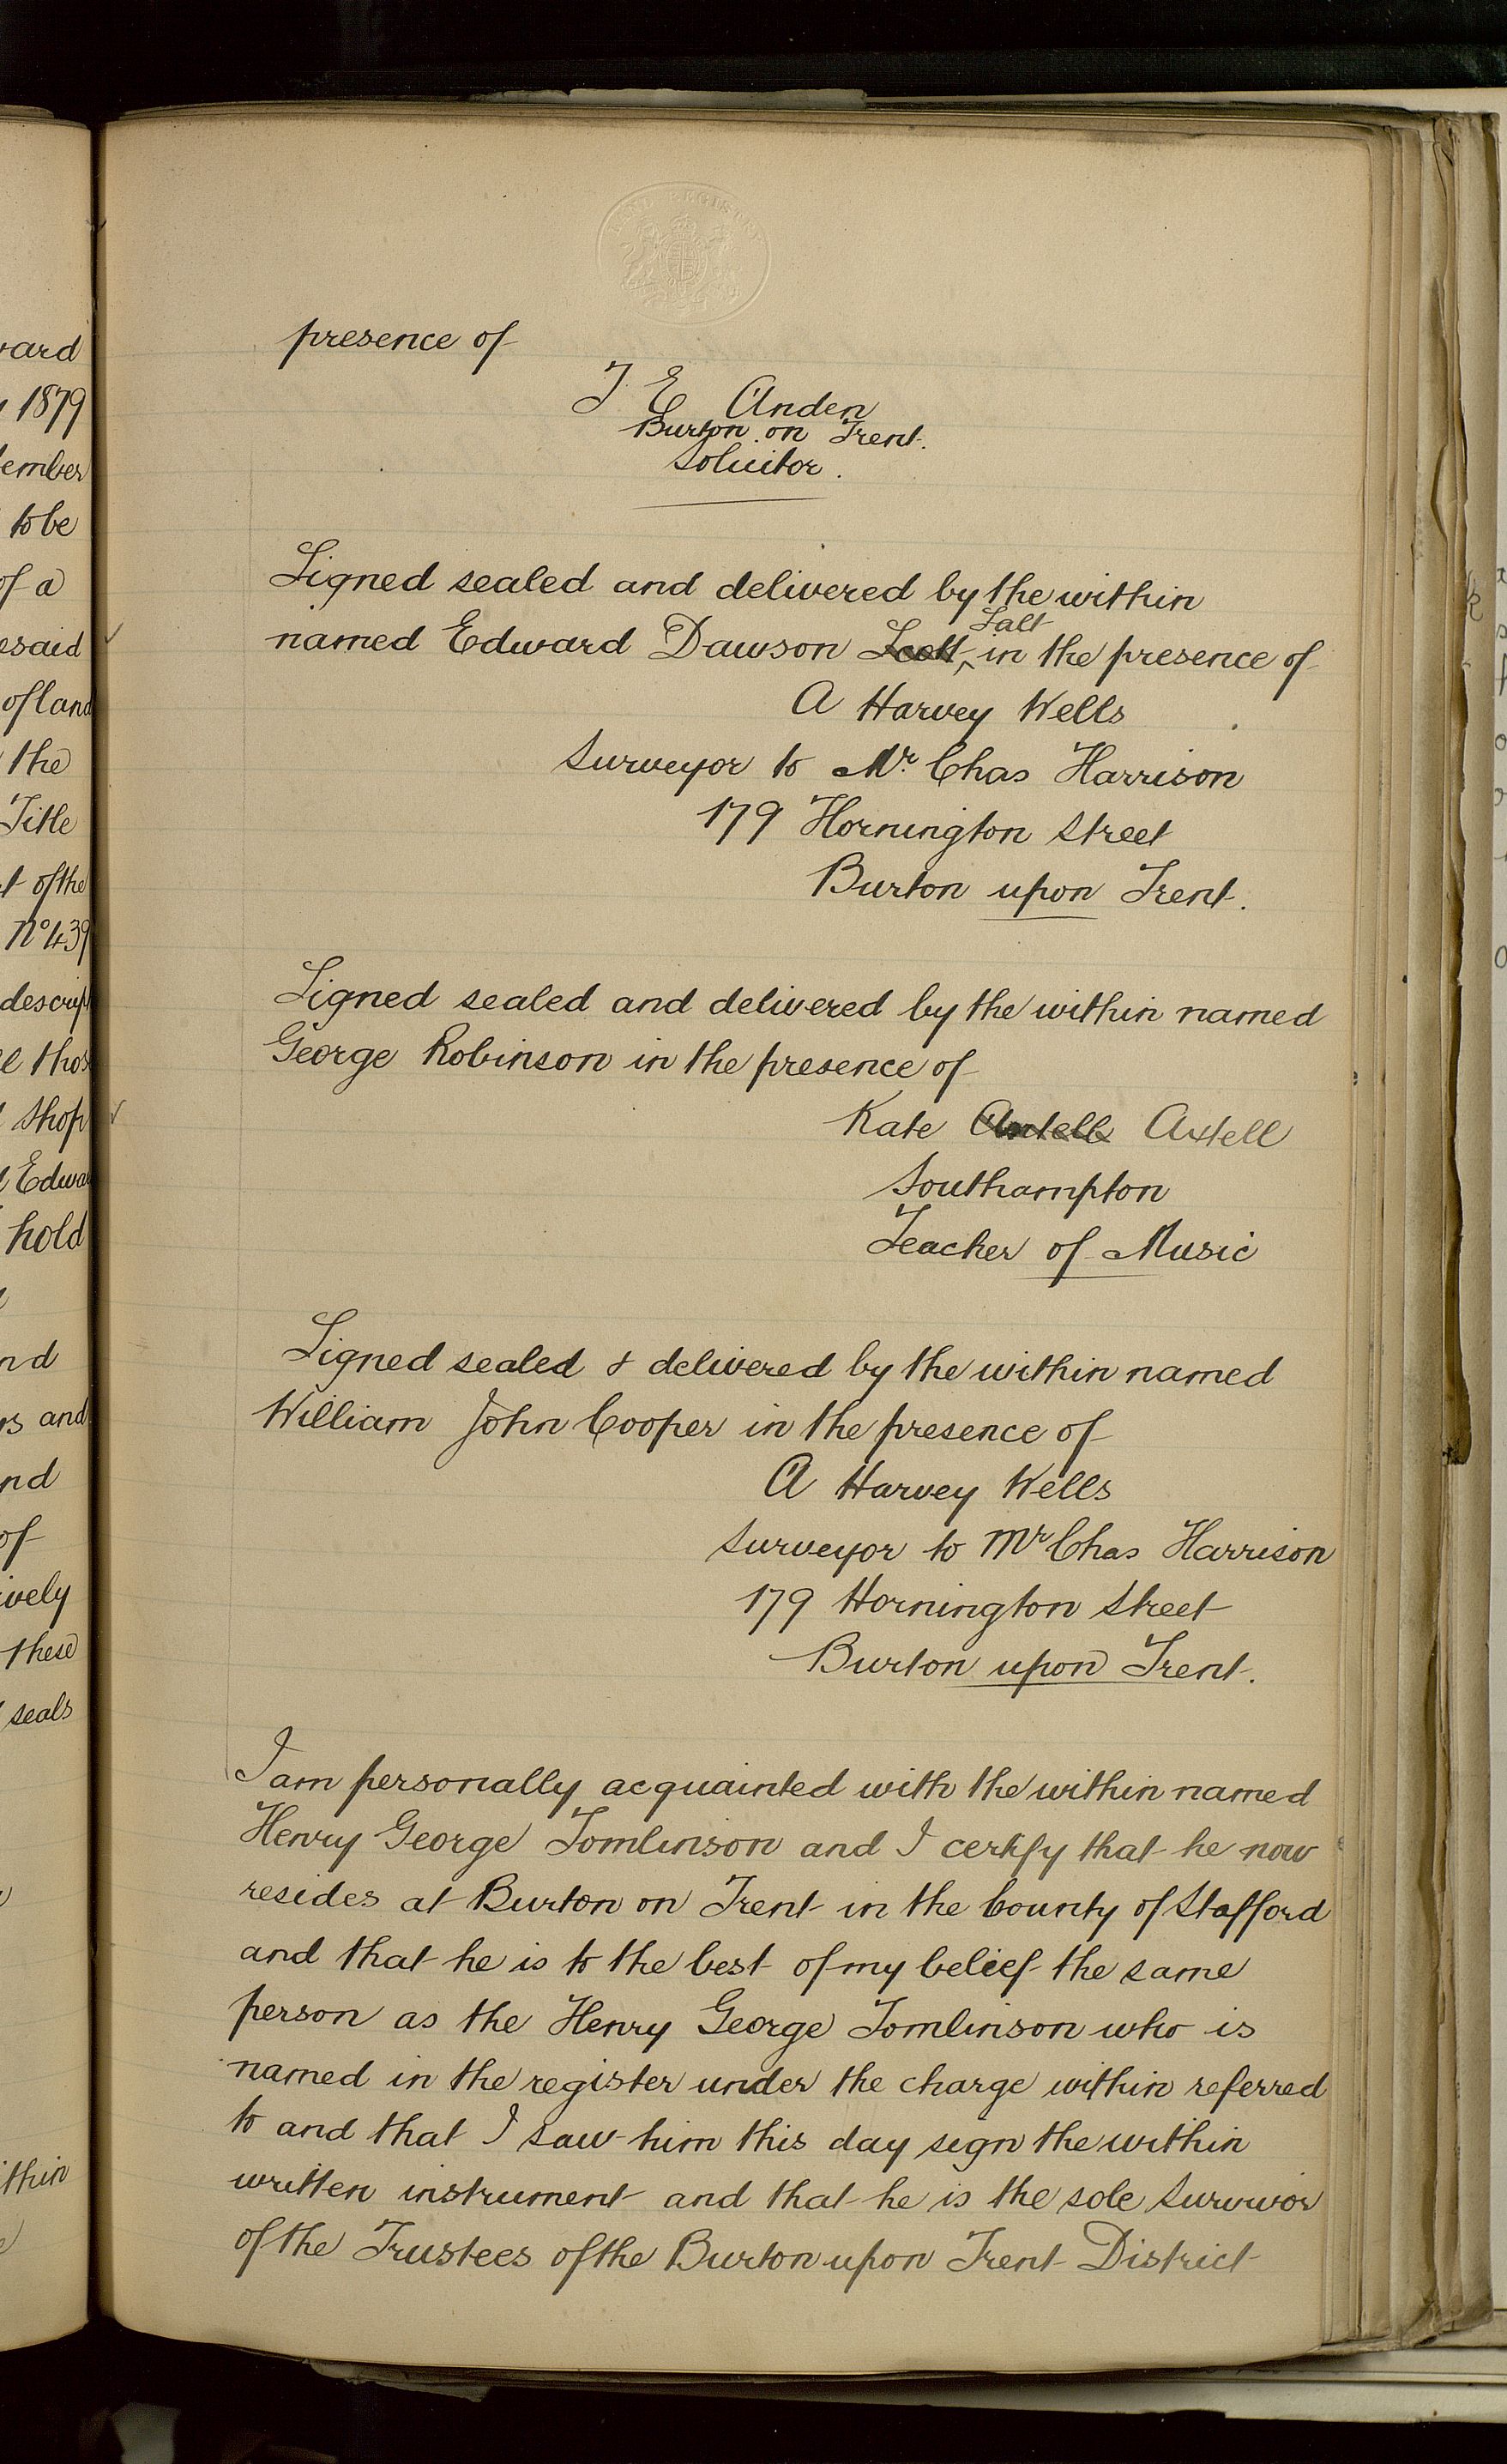 LAND REGISTRY
presence of
T E Anden
Burton on Trent.
Solicitor.
Signed sealed and delivered by the within
named Edward Dawson Scott Salt in the presence of
A Harvey Wells
Surveyor to Mr. Chas Harrison
179 Hornington Street
Burton upon Trent.
Signed sealed and delivered by the within named
George Robinson in the presence of
Kate Axtell
Southampton
Teacher of Music
Signed sealed & delivered by the within named
William John Cooper in the presence of
A Harvey Wells
Surveyor to Mr Chas Harrison
179 Hornington Street
Burton upon Trent.
I am personally acquainted with the within named
Henry George Tomlinson and I certify that he now
resides at Burton on Trent in the County of Stafford
and that he is to the best of my belief the same
person as the Henry George Tomlinson who is
named in the register under the charge within referred
to and that I saw him this day sign the within
written instrument and that he is the sole Survivor
of the Trustees of the Burton upon Trent District